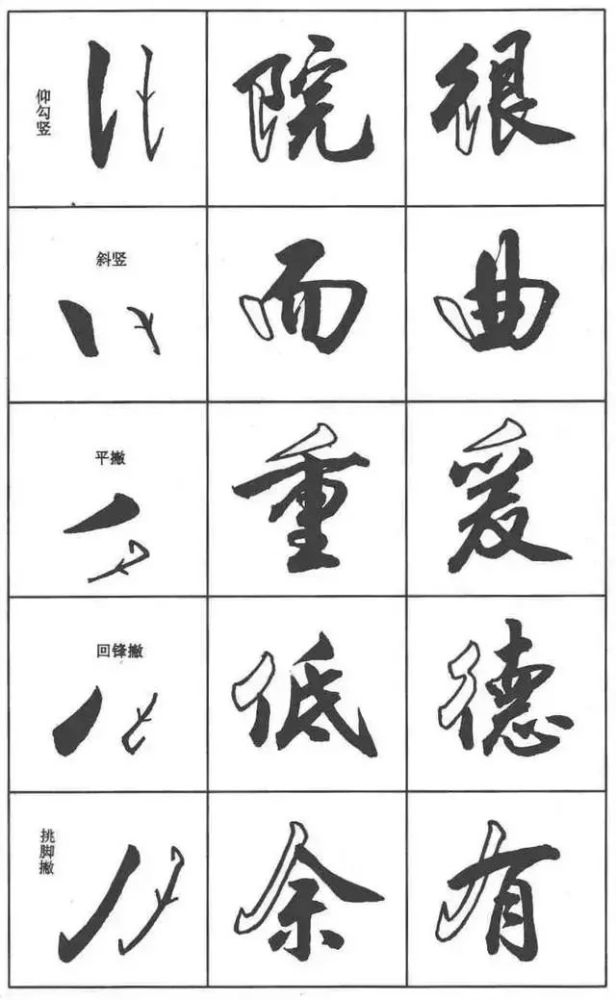 仰勾竖 院 很
斜竖 面 曲
平撇 重 爰
回锋撇 低 德
挑脚撇 余 有